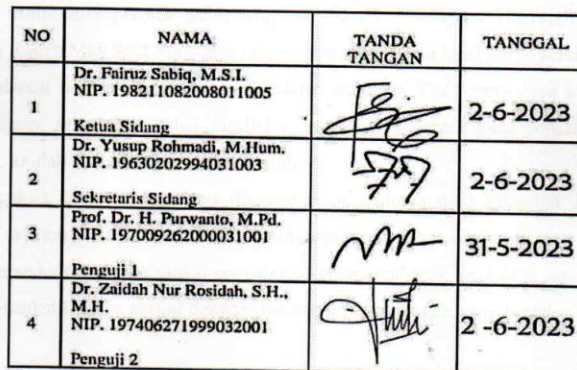 NO NAMA TANDA TANGAN TANGGAL
1 Dr. Fairuz Sabiq, M.S.I.
NIP. 198211082008011005
Ketua Sidang
2-6-2023
2 Dr. Yusup Rohmadi, M.Hum.
NIP. 19630202994031003
Sekretaris Sidang
2-6-2023
3 Prof. Dr. H. Purwanto, M.Pd.
NIP. 197009262000031001
Penguji 1
31-5-2023
4 Dr. Zaidah Nur Rosidah, S.H.,
M.H.
NIP. 197406271999032001
Penguji 2
2 -6-2023